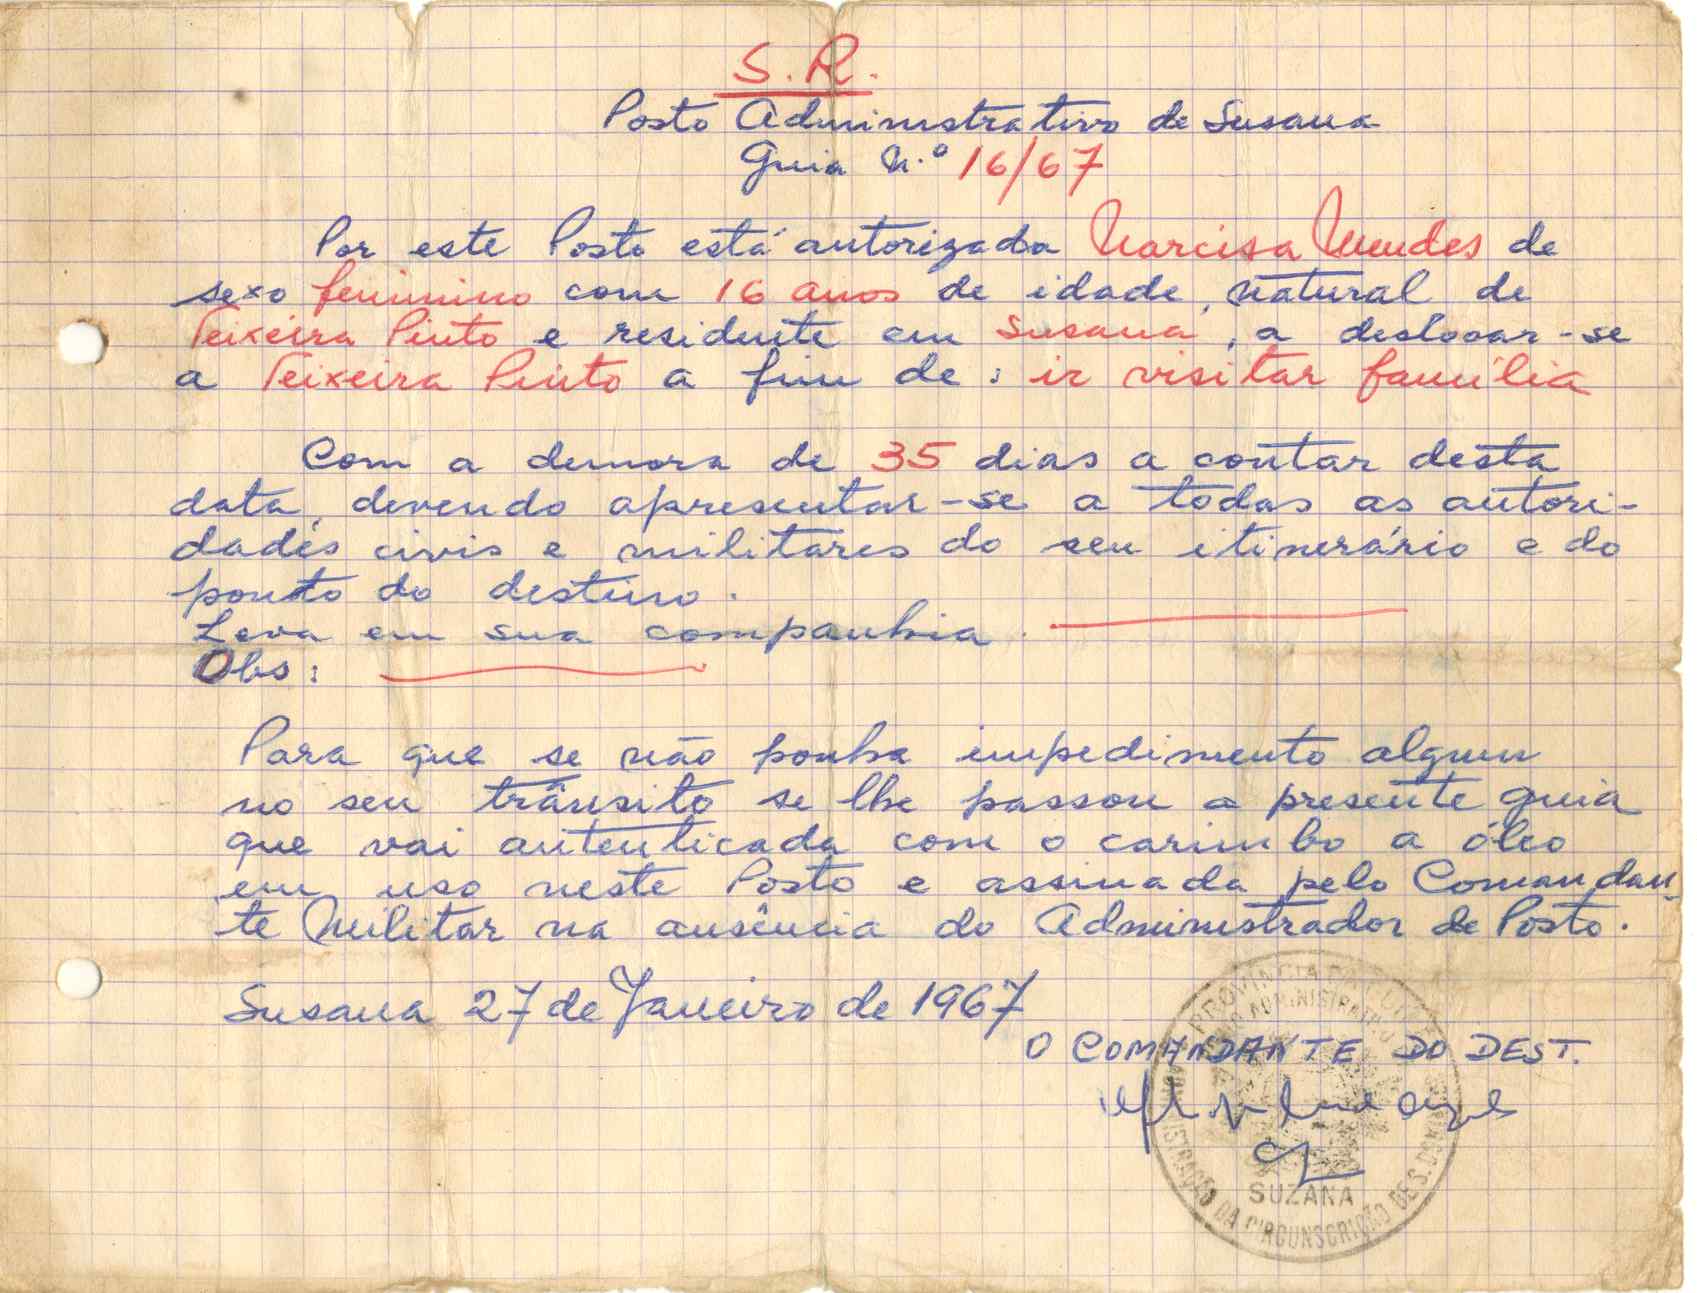 S. R.
Posto Administrativo de Susana
Guia N.º 16/67
Por este Posto está autorizada Narcisa Mendes de
sexo feminino com 16 anos de idade, natural de
Teixeira Pinto e residente em Susana, a deslocar-se
a Teixeira Pinto a fim de: ir visitar família
Com a demora de 35 dias a contar desta
data, devendo apresentar-se a todas as autori-
dades civis e militares do seu itinerário e do
ponto do destino.
Leva em sua companhia.
Obs:
Para que se não ponha impedimento algum
no seu trânsito se lhe passou a presente guia
que vai autenticada com o carimbo a óleo
em uso neste Posto e assinada pelo Comandan-
te Militar na ausência do Administrador de Posto.
Susana 27 de Janeiro de 1967
O COMANDANTE DO DEST.
PROVINCIA DA
POSTO ADMINISTRATIVO
SUZANA
ADMINISTRAÇÃO DA CIRCUNSCRIÇÃO DE S. DOMINGOS